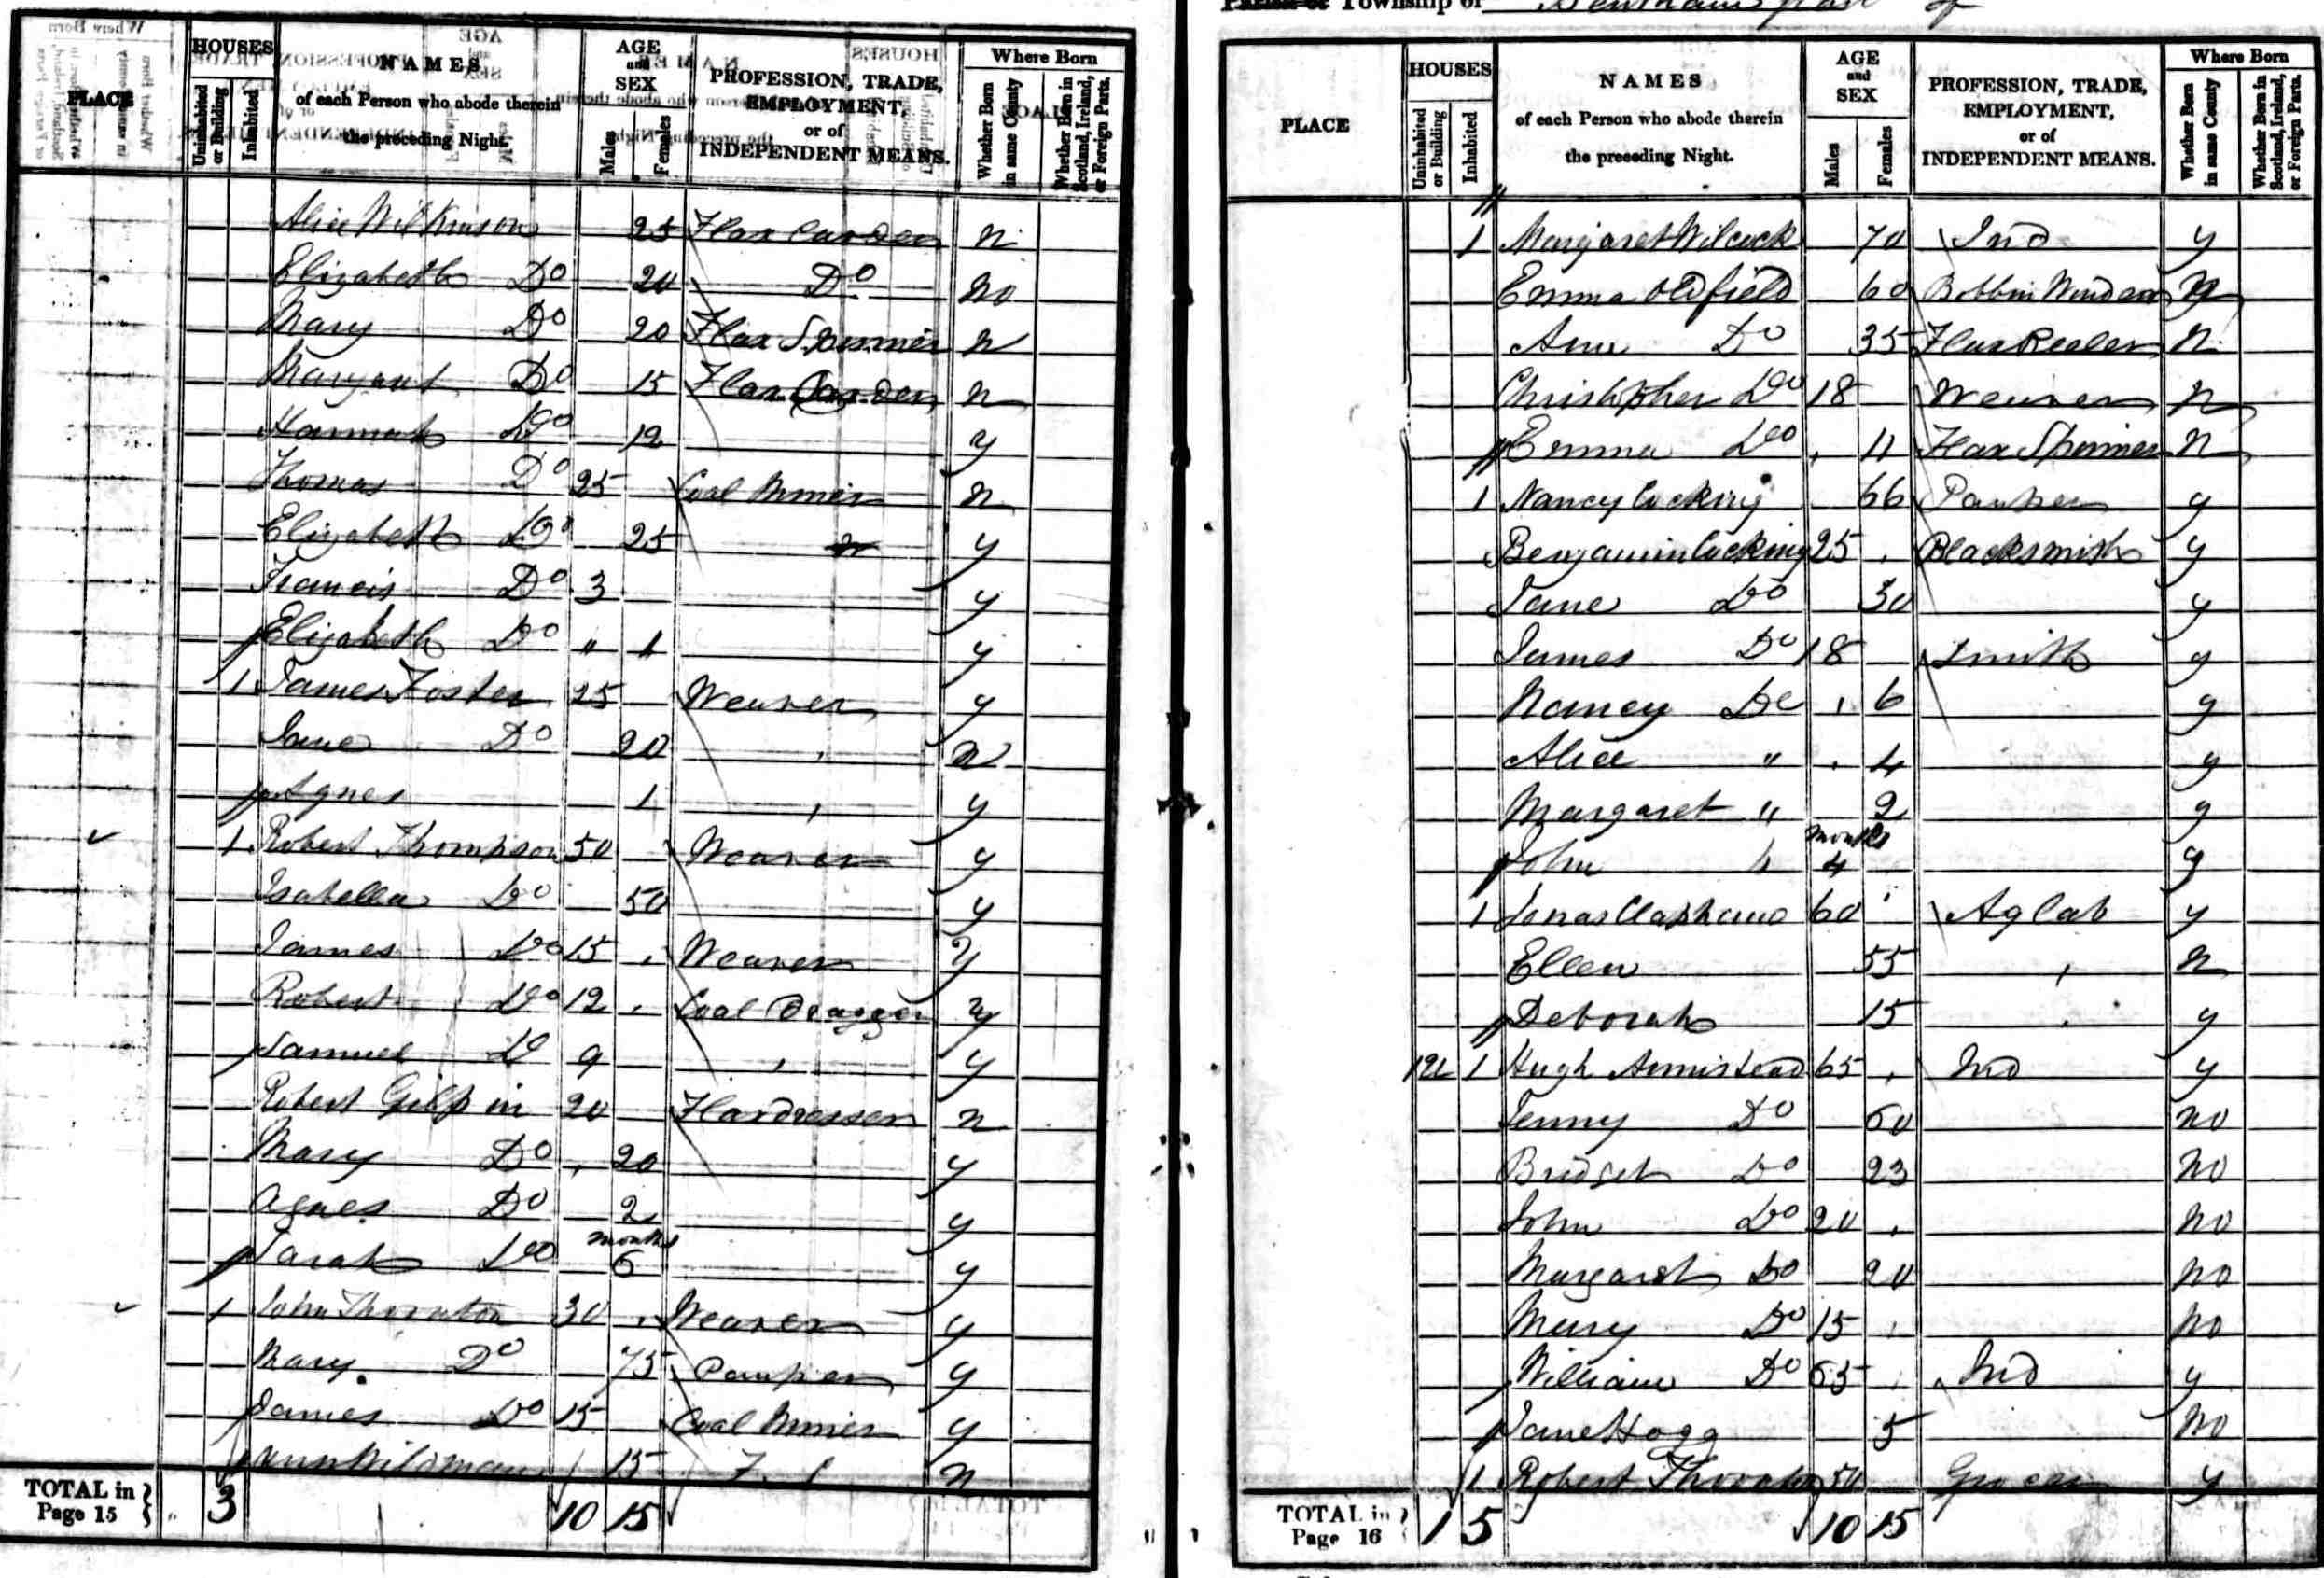 PLACE
HOUSES
Uninhabited or Building
Inhabited
NAMES
of each Person who abode therein
the preceding Night.
AGE
and
SEX
Males
Females
PROFESSION, TRADE,
EMPLOYMENT,
or of
INDEPENDENT MEANS.
Where Born
Whether Born in same County
Whether Born in Scotland, Ireland, or Foreign Parts.
Alice Wilkinson 25 Flax Carder n
Elizabeth Do 20 Do no
Mary Do 20 Flax Spinner n
Margaret Do 15 Flax Carder n
Hannah Do 12 y
Thomas Do 25 Coal Miner n
Elizabeth Do 25 y
Francis Do 3 y
Elizabeth Do " 1 y
1 James Foster 25 Weaver y
Jane Do 20 n
Agnes 1 y
1 Robert Thompson 50 Weaver y
Isabella Do 50 y
James Do 15 Weaver y
Robert Do 12 Coal Dragger y
Samuel D 9 y
Robert Gilpin 20 Flaxdresser n
Mary Do 20 y
Agnes Do 2 y
Sarah Do months 6 y
1 John Thornton 30 Weaver y
Mary Do 75 Pauper y
James Do 15 Coal Miner y
Ann Wildman 15 n
TOTAL in Page 15 3 10 15
Parish or Township of Bentham part of
PLACE
HOUSES
Uninhabited or Building
Inhabited
NAMES
of each Person who abode therein
the preceding Night.
AGE
and
SEX
Males
Females
PROFESSION, TRADE,
EMPLOYMENT,
or of
INDEPENDENT MEANS.
Where Born
Whether Born in same County
Whether Born in Scotland, Ireland, or Foreign Parts.
1 Margaret Wilcock 70 Ind y
Emma Oldfield 60 Bobbin Winder n
Ann Do 35 Flax Reeler n
Christopher Do 18 Weaver n
Emma Do 11 Flax Spinner n
1 Nancy Cocking 66 Pauper y
Benjamin Cocking 25 Blacksmith y
Jane Do 30 y
James Do 18 Smith y
Nancy Do 6 y
Alice " 4 y
Margaret " 2 y
John " months 4 y
1 Jonas Clapham 60 Ag Lab y
Ellen 55 n
Deborah 15 y
1 1 Hugh Armistead 65 Ind y
Jenny Do 60 no
Bridget Do 23 no
John Do 20 no
Margaret Do 20 no
Mary Do 15 no
William Do 65 Ind y
Jane Hogg 5 no
1 Robert Thornton 50 Grocer y
TOTAL in Page 16 1 5 10 15